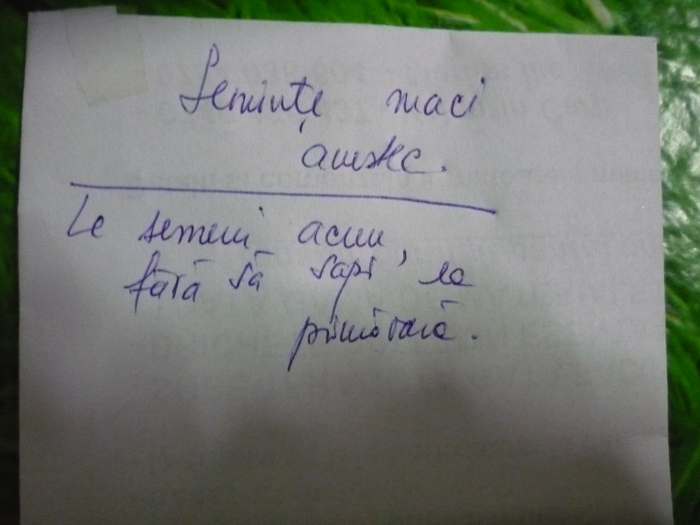 Semințe maci
amestec.
Le semeni acum,
fără să sapi, la
primăvară.